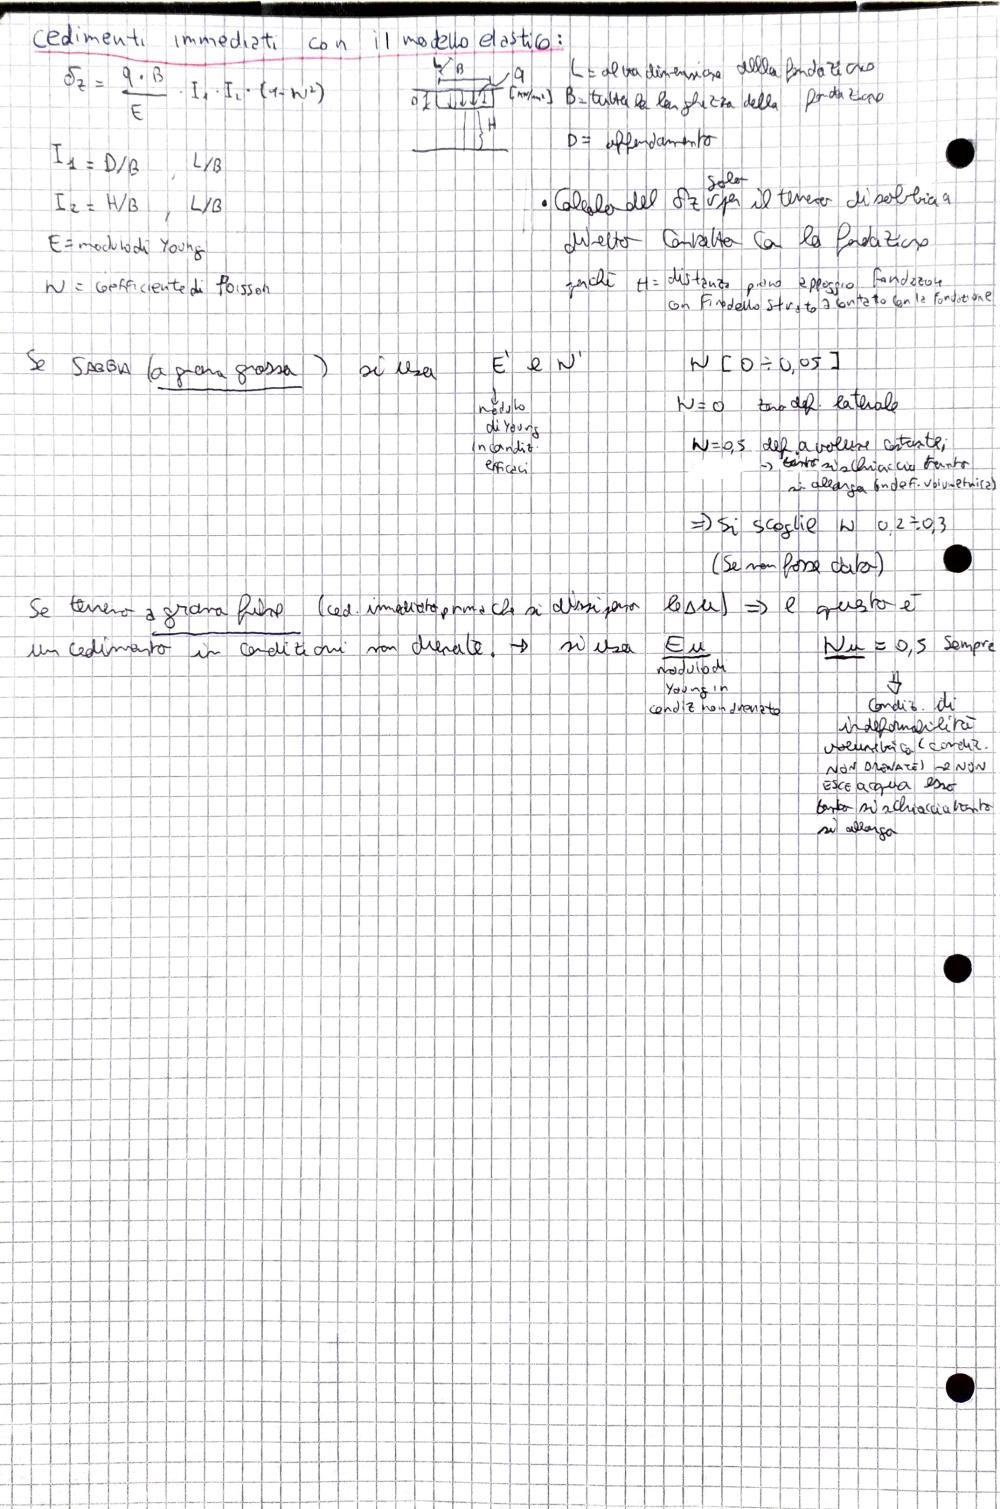 cedimenti immediati con il modello elastico:
δz = q·B / E · I1 · I2 · (1-ν²)
L B q
[kN/m²]
D H
L = altra dimensione della fondazione
B = tutta la larghezza della fondazione
D = affondamento
I1 = D/B , L/B
I2 = H/B , L/B
E = modulo di Young
ν = coefficiente di Poisson
• Calcolo del δz solo per il terreno di sabbia a
diretto contatto con la fondazione
perché H = distanza piano appoggio fondazione
con fine dello strato a contatto con la fondazione
Se SABBIA (a grana grossa) si usa E' e ν' ν [0÷0,05]
↓
modulo
di Young
in condiz.
efficaci
ν=0 zero def. laterale
ν=0,5 def. a volume costante,
→ tanto si schiaccia tanto
si allarga (indef. volumetrica)
⇒ Si sceglie ν 0,2÷0,3
(Se non fosse dato)
Se terreno a grana fine (ced. immediato, prima che si dissipano le Δu) ⇒ e questo è
un cedimento in condizioni non drenate. → si usa Eu νu = 0,5 sempre
modulo di
Young in
condiz non drenate
⇓
Condiz. di
indeformabilità
volumetrica (condiz.
NON DRENATE) → NON
ESCE acqua esso
tanto si schiaccia tanto
si allarga